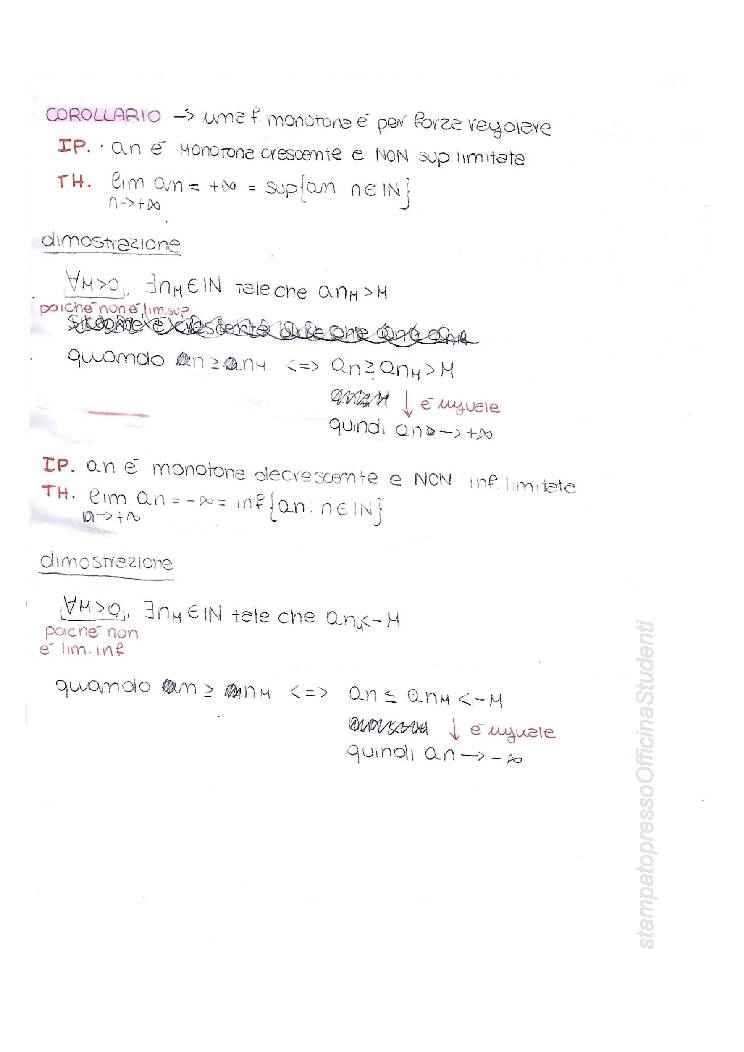 COROLLARIO → una f. monotona é per forza regolare
IP. · an é monotona crescente e NON sup. limitata
TH. lim an = +∞ = sup{an n∈ℕ}
n→+∞
dimostrazione
∀M>0, ∃nM∈ℕ tale che anM>M
poiché non é lim. sup
quando n≥nM <=> an≥anM>M
↓ é uguale
quindi an→+∞
IP. an é monotona decrescente e NON inf. limitata
TH. lim an = -∞ = inf{an: n∈ℕ}
n→+∞
dimostrazione
∀M>0, ∃nM∈ℕ tale che anM<-M
poiché non
é lim. inf
quando n≥nM <=> an≤anM<-M
↓ é uguale
quindi an→-∞
stampatopressoOfficinaStudenti